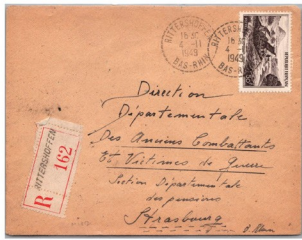 RITTERSHOFFEN
16 30
4 - 11
1949
BAS-RHIN
RITTERSHOFFEN
16 30
4 - 11
1949
BAS-RHIN
Direction
Départementale
Des Anciens Combattants
Et Victimes de Guerre
Section Départementale
des pensions
Strasbourg
RITTERSHOFFEN
R 162